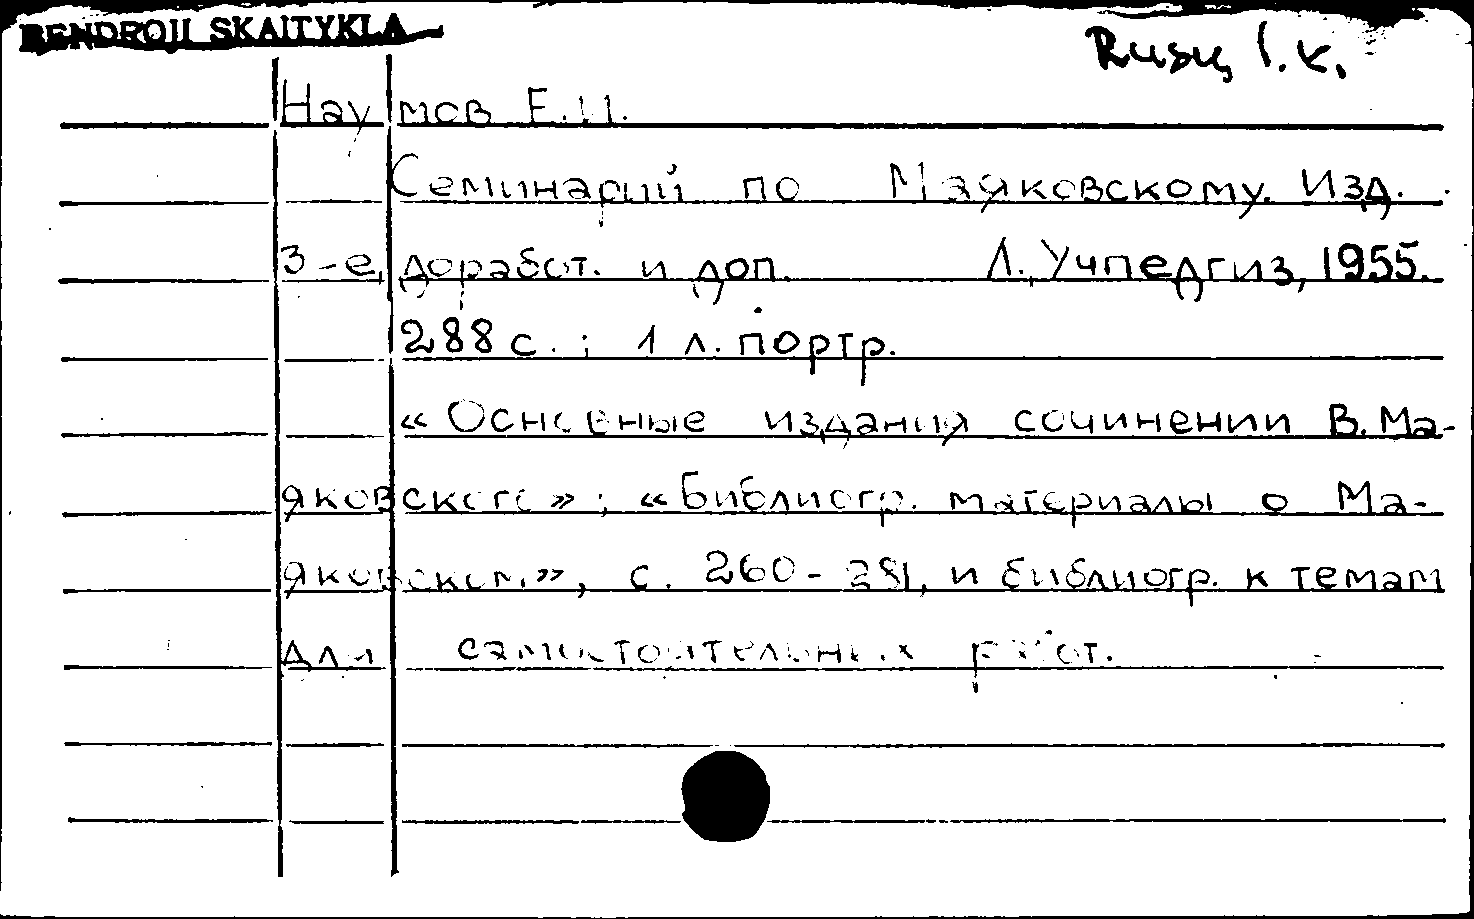 BENDROJI SKAITYKLA
Rusų l.k.
Наумов Е.И.
Семинарий по Маяковскому. Изд.
3-е, доработ. и доп. Л., Учпедгиз, 1955.
288 с. ; 1 л. портр.
«Основные издания сочинении В. Ма-
яковского» ; «Библиогр. материалы о Ма-
яковском», с. 260-281, и библиогр. к темам
для самостоятельных работ.